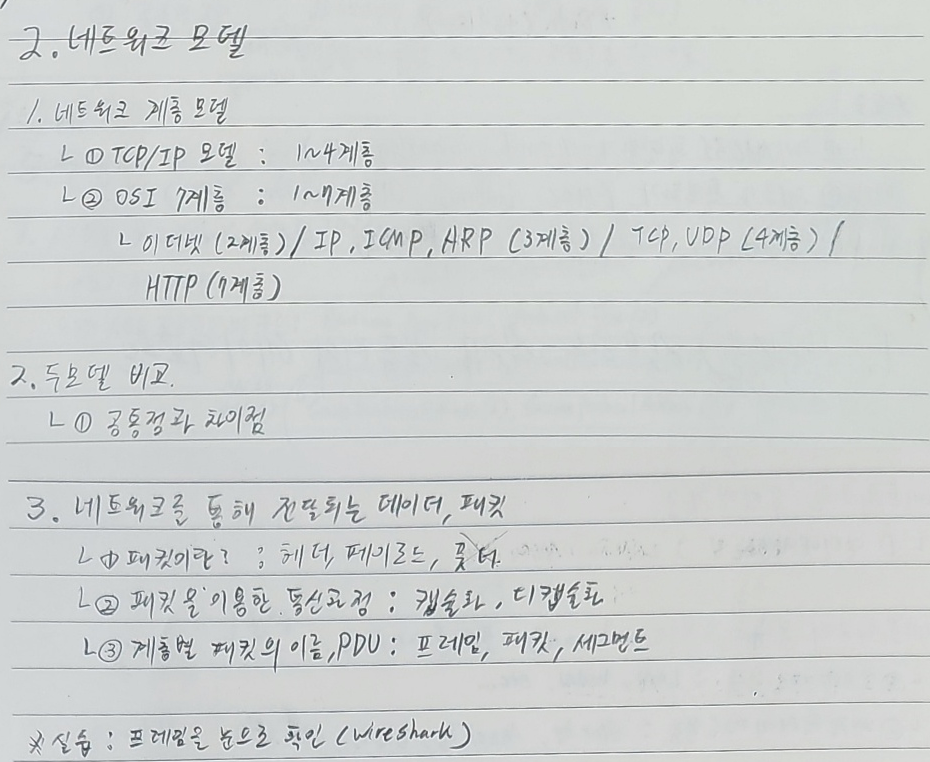 2. 네트워크 모델
1. 네트워크 계층 모델
ㄴ ① TCP/IP 모델 : 1~4계층
ㄴ ② OSI 7계층 : 1~7계층
ㄴ 이더넷 (2계층) / IP, ICMP, ARP (3계층) / TCP, UDP (4계층) /
HTTP (7계층)
2. 두모델 비교.
ㄴ ① 공통점과 차이점
3. 네트워크를 통해 전달되는 데이터, 패킷
ㄴ ① 패킷이란? : 헤더, 페이로드, 풋터
ㄴ ② 패킷을 이용한 통신과정 : 캡슐화, 디캡슐화
ㄴ ③ 계층별 패킷의 이름, PDU : 프레임, 패킷, 세그먼트
※ 실습 : 프레임을 눈으로 확인 (wireshark)